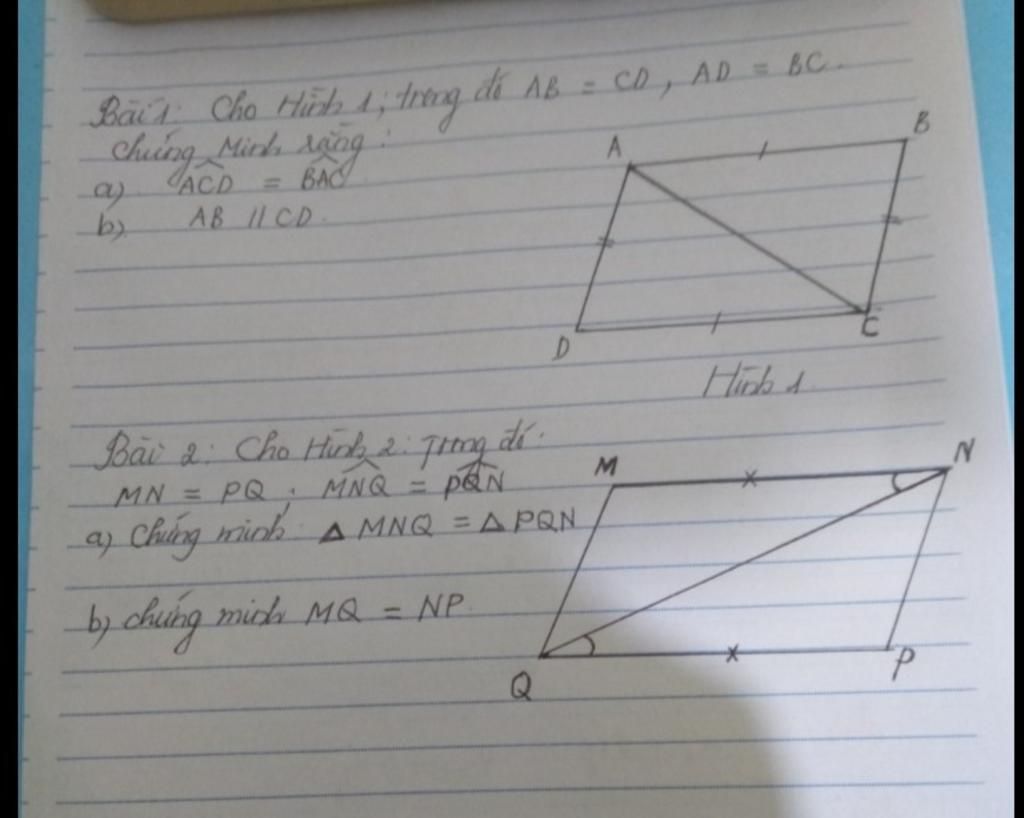 Bài 1: Cho Hình 1, trong đó AB = CD, AD = BC.
Chứng Minh rằng:
a) ACD = BAC
b) AB // CD.
A
B
D
C
Hình 1
Bài 2: Cho Hình 2: Trong đó:
MN = PQ, MNQ = PQN
a) Chứng minh: △ MNQ = △ PQN
b) chứng minh MQ = NP.
M
N
Q
P